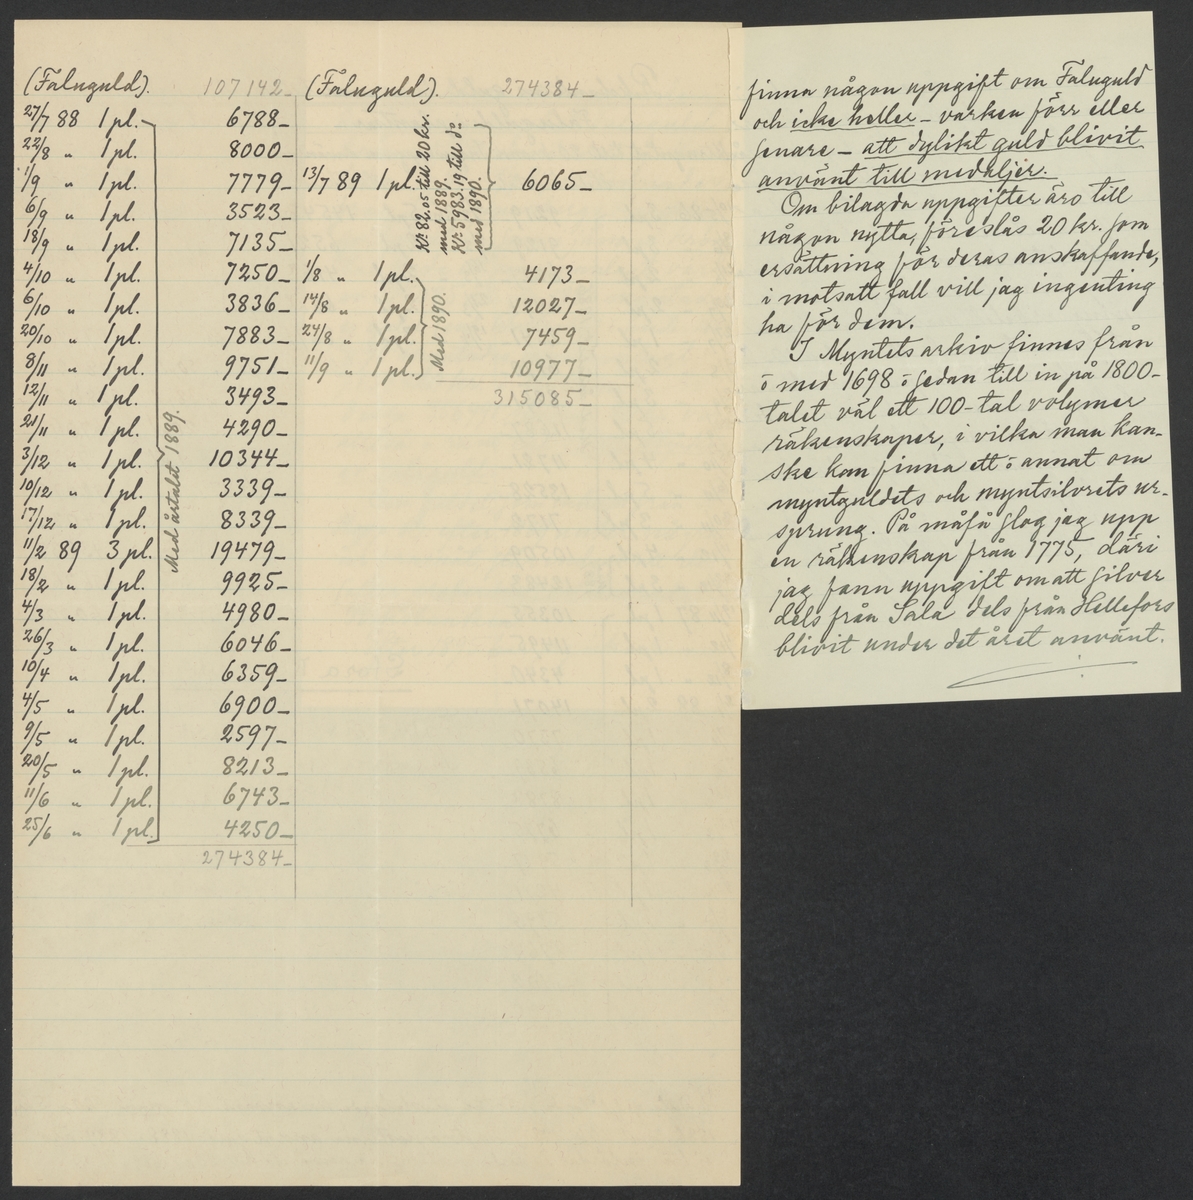 (Faluguld). 107142_
27/7 88 1 pl. 6788_
22/8 " 1 pl. 8000_
1/9 " 1 pl. 7779_
6/9 " 1 pl. 3523_
18/9 " 1 pl. 7135_
4/10 " 1 pl. 7250_
6/10 " 1 pl. 3836_
20/10 " 1 pl. 7883_
8/11 " 1 pl. 9751_
12/11 " 1 pl. 3493_
21/11 " 1 pl. 4290_
3/12 " 1 pl. 10344_
10/12 " 1 pl. 3339_
17/12 " 1 pl. 8339_
11/2 89 3 pl. 19479_
18/2 " 1 pl. 9925_
4/3 " 1 pl. 4980_
26/3 " 1 pl. 6046_
10/4 " 1 pl. 6359_
4/5 " 1 pl. 6900_
9/5 " 1 pl. 2597_
20/5 " 1 pl. 8213_
11/6 " 1 pl. 6743_
25/6 " 1 pl. 4250_
274384_
Med årtalet 1889.
(Faluguld). 274384_
13/7 89 1 pl. 6065_
Kr. 82.05 till 20 kr.
med 1889.
Kr. 5983.19 till do
med 1890.
1/8 " 1 pl. 4173_
14/8 " 1 pl. 12027_
24/8 " 1 pl. 7459_
11/9 " 1 pl. 10977_
Med 1890.
315085_
finna någon uppgift om Faluguld
och icke heller – varken förr eller
senare – att dylikt guld blivit
använt till medaljer.
Om bilagda uppgifter äro till
någon nytta, föreslås 20 kr. som
ersättning för deras anskaffande,
i motsatt fall vill jag ingenting
ha för dem.
I Myntets arkiv finnes från
o med 1698 o sedan till in på 1800-
talet väl ett 100-tal volymer
räkenskaper, i vilka man kan-
ske kan finna ett o annat om
myntguldets och myntsilvrets ur-
sprung. På måfå slog jag upp
en räkenskap från 1775, däri
jag fann uppgift om att silver
dels från Sala dels från Hellefors
blivit under det året använt.